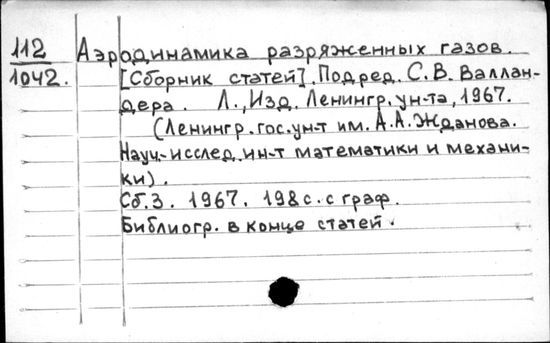 112 Аэродинамика разряженных газов.
1042. [Сборник статей]. Под ред. С. В. Валлан-
дера. Л., Изд. Ленингр. ун-та, 1967.
(Ленингр. гос. ун-т им. А.А. Жданова.
Науч.-исслед. ин-т математики и механи-
ки).
Сб. 3. 1967. 198 с. с граф.
Библиогр. в конце статей.